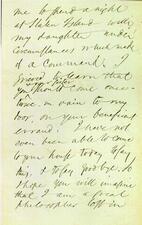 me to spend a night
at Staten Island with
my daughter under
circumstances which made
of a Command. I
grieved to learn that
you should come once
twice in vain to my
door, on your beneficent
errand. I have not
even been able to come
to your house today to say
this, & to say goodbye. So
I hope you will imagine
that I am a great
philosopher lost in